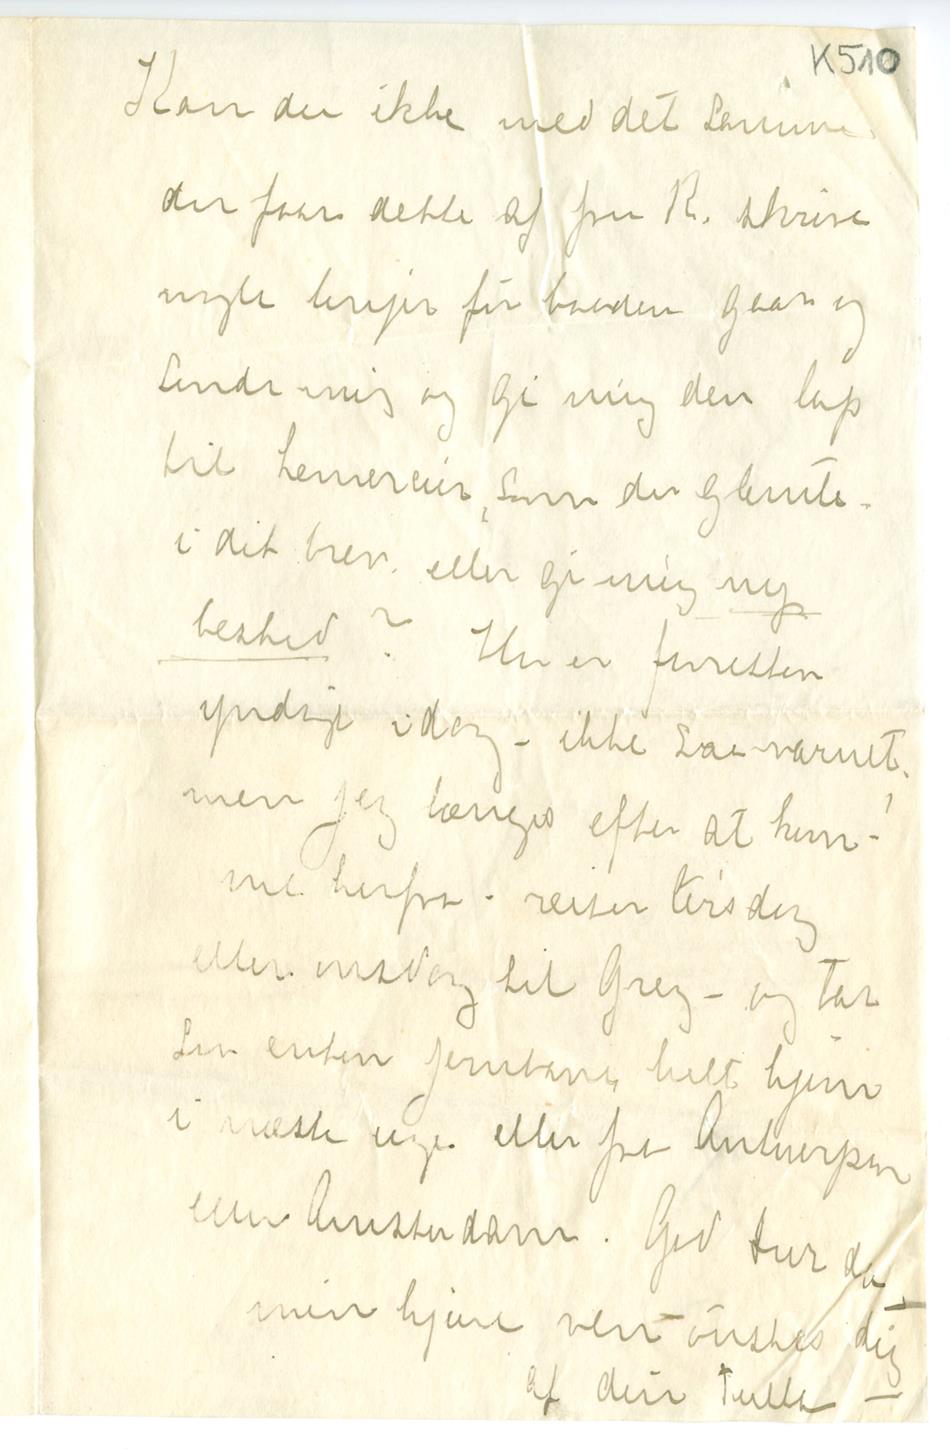 K510
Kan du ikke med det samme
du faar dette af fru R. skrive
nogle linjer før baaden gaar og
sende mig og gi mig den lap
til Lemercier, som du glemte
i dit brev. eller gi mig ny
besked? Her er forresten
yndigt idag – ikke saa varmt,
men jeg længes efter at kom-
me herfra – reiser tirsdag
eller onsdag til Grez – og tar
saa enten jernbane helt hjem
i næste uge eller fra Antwerpen
eller Amsterdam. God tur da
min kjære ven ønskes dig
af din Tulla –